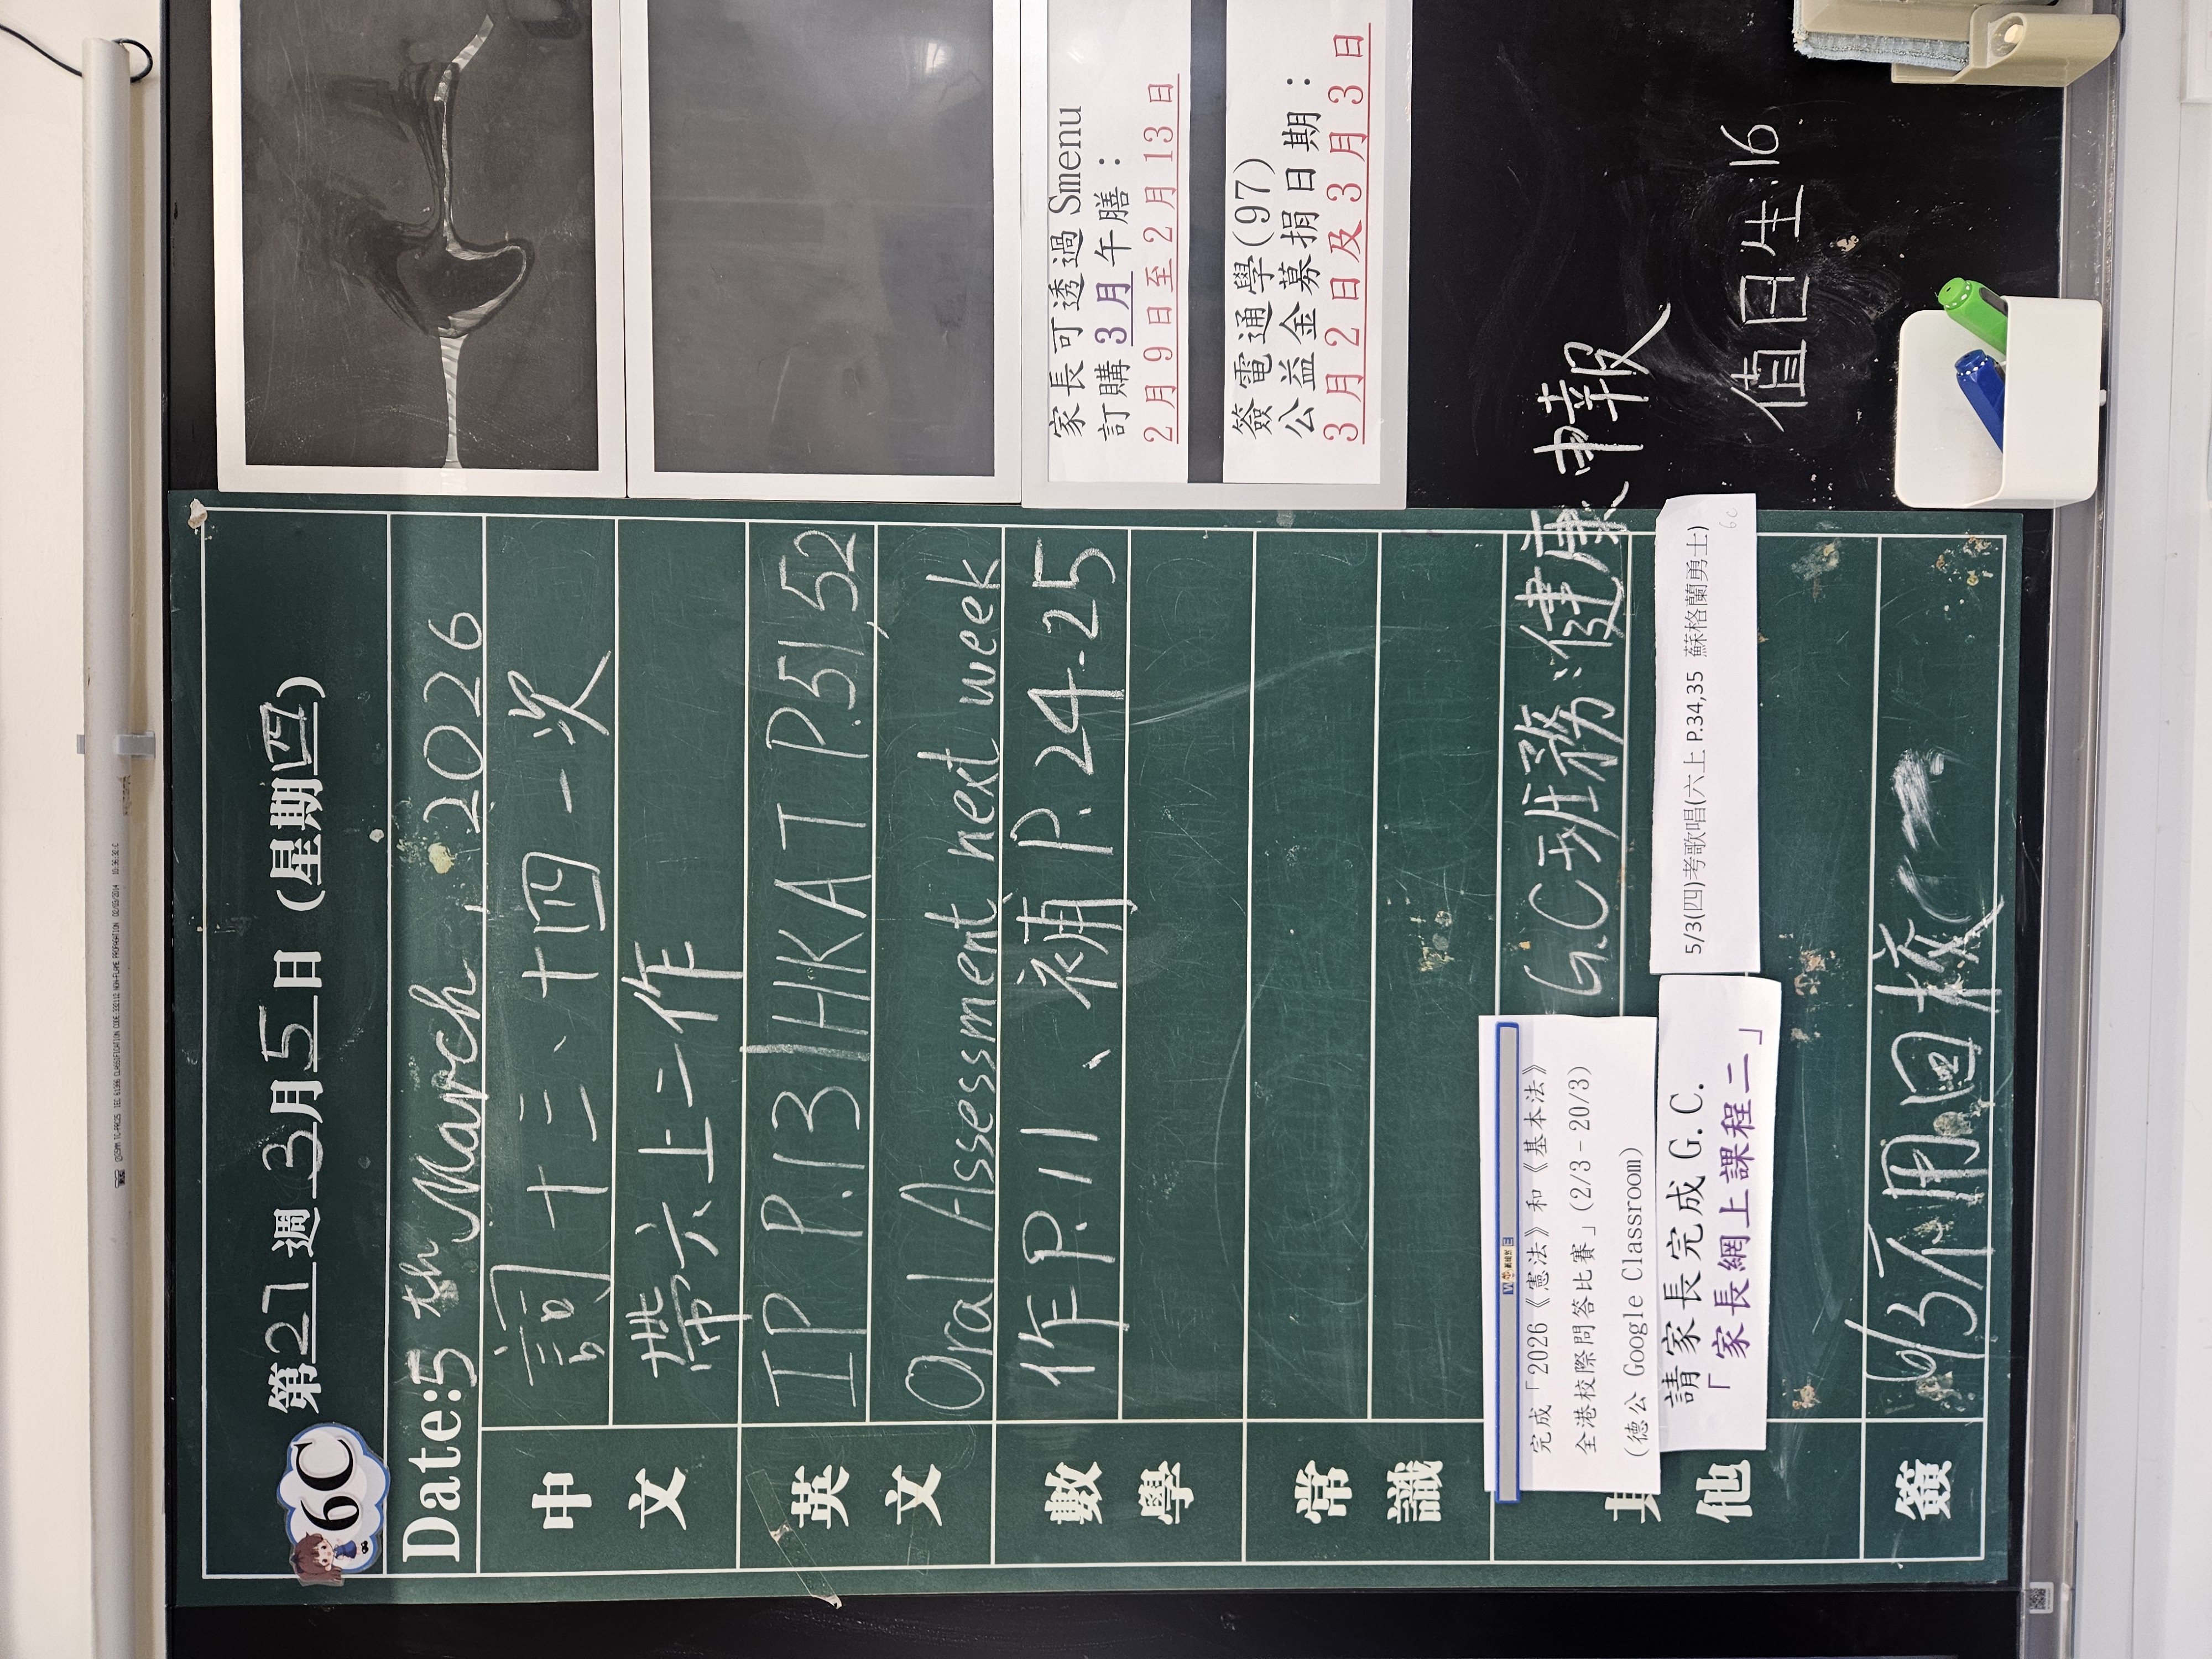 6C
第27週3月5日(星期四)
Date:5th March, 2026
中文
詞十三、十四一次
帶六上二作
英文
IP P.13 HKAT P.51,52
Oral Assessment next week
數學
作P.11、補P.24-25
常識
其他
G.C班務:健康申報
完成「2026《憲法》和《基本法》
全港校際問答比賽」(2/3-20/3)
(德公 Google Classroom)
5/3(四)考歌唱(六上 P.34,35 蘇格蘭勇士)
6C
請家長完成 G.C.
「家長網上課程二」
簽
6/3不用回校
家長可透過 Smenu
訂購3月午膳:
2月9日至2月13日
簽電通學(97)
公益金募捐日期:
3月2日及3月3日
值日生:16